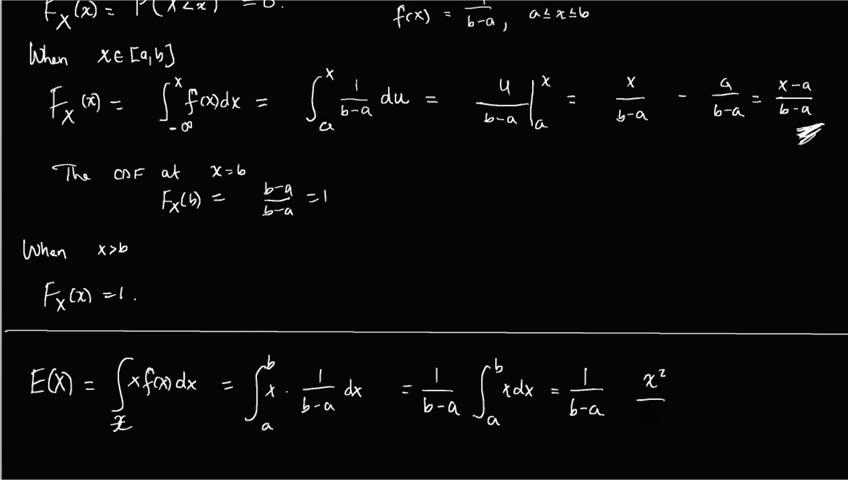 F_X(x) = P(X<x) = 0.
f(x) = 1/(b-a), a≤x≤b
When x∈[a,b]
F_X(x) = ∫_{-∞}^{x} f(x)dx = ∫_a^x 1/(b-a) du = u/(b-a) |_a^x = x/(b-a) - a/(b-a) = (x-a)/(b-a)
The CDF at x=b
F_X(b) = (b-a)/(b-a) = 1
When x>b
F_X(x) = 1.
E(X) = ∫_x x f(x) dx = ∫_a^b x · 1/(b-a) dx = 1/(b-a) ∫_a^b x dx = 1/(b-a) x²/